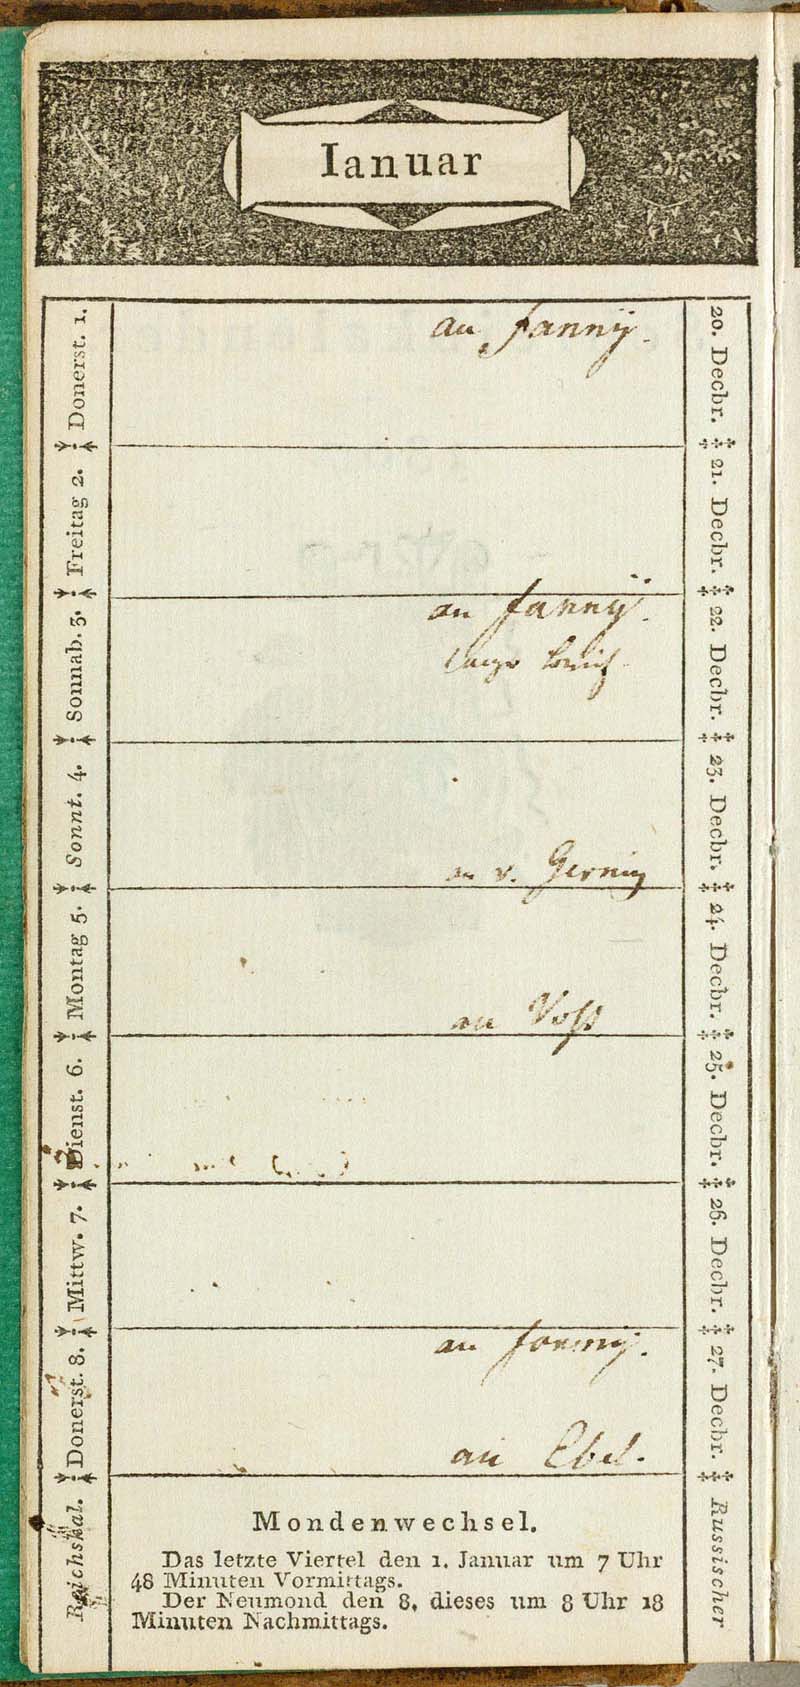 Ianuar
Donerst. 1.
an Fanny.
20. Decbr.
Freitag 2.
21. Decbr.
Sonnab. 3.
an Fanny.
22. Decbr.
Sonnt. 4.
an v. Gerning
23. Decbr.
Montag 5.
an Voß
24. Decbr.
Dienst. 6.
25. Decbr.
Mittw. 7.
26. Decbr.
Donerst. 8.
an
an Ebel.
27. Decbr.
Reichskal.
Russischer
Mondenwechsel.
Das letzte Viertel den 1. Januar um 7 Uhr
48 Minuten Vormittags.
Der Neumond den 8. dieses um 8 Uhr 18
Minuten Nachmittags.